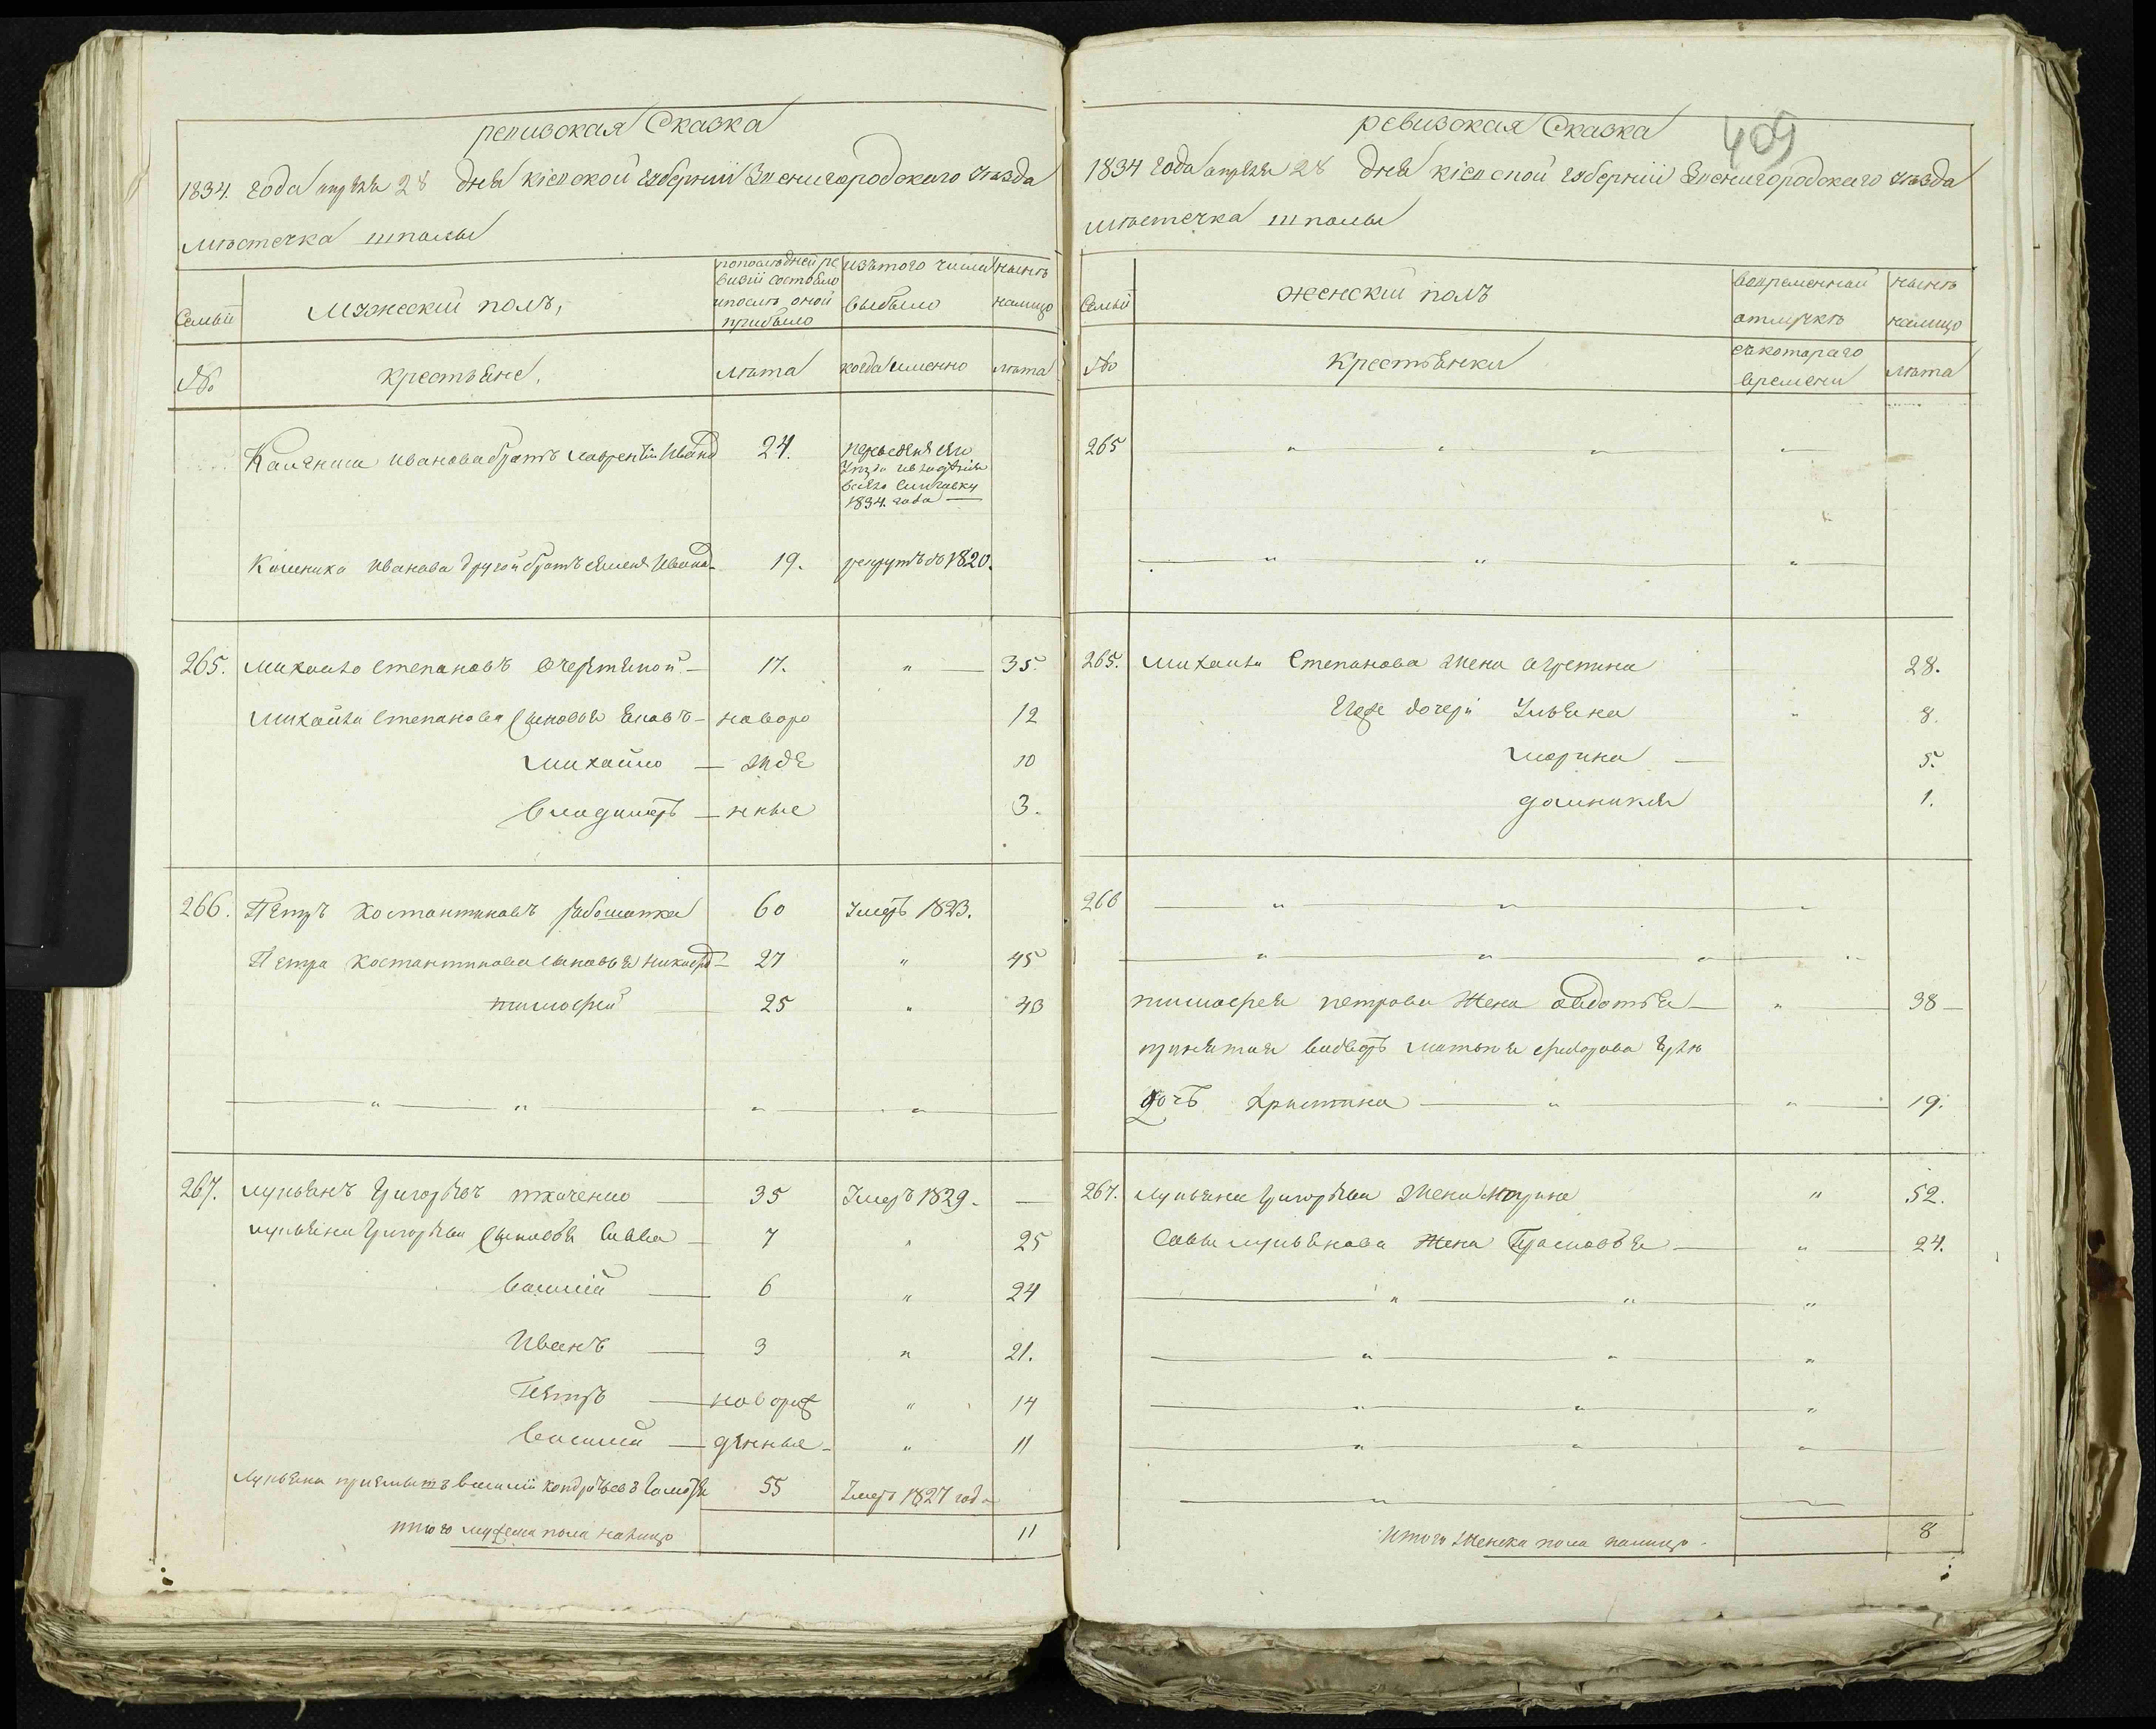 ревизская Сказка
1834. года апреля 28 дня кіевской губерніи Звенигородского уѣзда
мѣстечка шполы
Семьи
Мужескій полъ,
попослѣдней ре
визіи состояло
ипослѣ оной
прибыло
изътого числа
выбыло
нынѣ
налицо
№
крестьяне.
лѣта
когда именно
лѣта
Каленика Иванова братъ лаврентій Иванов
24.
1834. года
Каленика Иванова другой братъ семенъ Иванов
19.
рекрутъ въ 1820.
265. Михайло степановъ Очеретяной
17. " 35
Михайла степанова сыновья Яковъ
новоро 12
Михайло
жде 10
Владимеръ
нные 3.
266. Петръ Костантиновъ
60 Умеръ 1823.
Петра Костантинова сыновья никифор
27 " 45
тимофей
25 " 43
" " " "
267. лукьянъ Григорьевъ ткаченко
35 Умеръ 1829. —
лукьяна Григорьева сыновья Савва
7 " 25
Василій
6 " 24
Иванъ
3 " 21.
Петръ
новорож " 14
Василій
денные " 11
Лукьяна приемышъ василій Кондратьевъ
55 Умеръ 1827 года
итого мужеска пола налицо
11
ревизская Сказка
409
1834 года апреля 28 дня кіевской губерніи Звенигородскаго уѣзда
мѣстечка шполы
Семьи
женскій полъ
вовременной
отлучкѣ
нынѣ
налицо
№
Крестьянки
съкотораго
времени
лѣта
265 " " " "
" " "
265. Михаила Степанова жена агрепина
28.
Егоже дочери Ульяна
" 8.
Марина
5.
домникия
1.
266 " " "
" " " "
тимофея петрова жена авдотья
" 38
Дочь Христина " " 19.
267. лукьяна Григорьева жена Марина
" 52.
Саввы лукьянова жена Прасковья
" 24.
" " "
" " "
" " "
" " "
" "
Итого женска пола налицо.
8